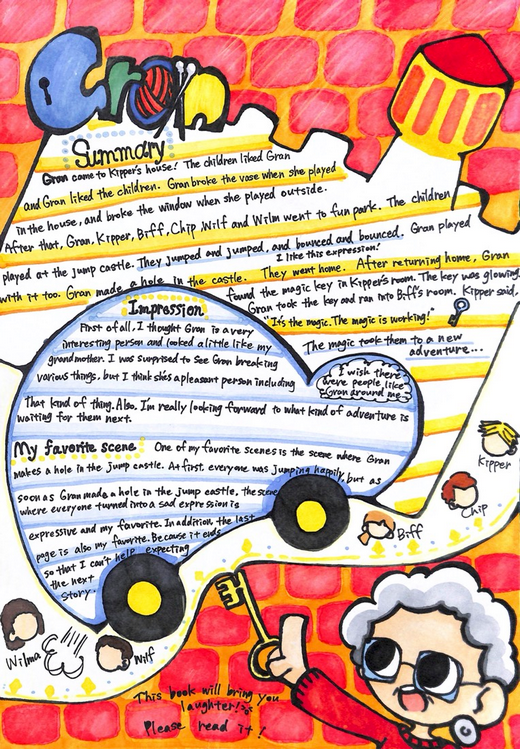 Gran
Summary
Gran came to Kipper's house! The children liked Gran
and Gran liked the children. Gran broke the vase when she played
in the house, and broke the window when she played outside.
After that, Gran, Kipper, Biff, Chip, Wilf and Wilm went to fun park. The children
played at the jump castle. They jumped and jumped, and bounced and bounced. Gran played
I like this expression!
with it too. Gran made a hole in the castle. They went home. After returning home, Gran
found the magic key in Kipper's room. The key was glowing.
Gran took the key and ran into Biff's room. Kipper said,
"It's the magic. The magic is working!"
The magic took them to a new
adventure...
Impression
First of all, I thought Gran is a very
interesting person and looked a little like my
grandmother. I was surprised to see Gran breaking
various things, but I think she's a pleasant person including
that kind of thing. Also, I'm really looking forward to what kind of adventure is
waiting for them next.
I wish there
were people like
Gran around me.
My favorite scene
One of my favorite scenes is the scene where Gran
makes a hole in the jump castle. At first, everyone was jumping happily, but as
soon as Gran made a hole in the jump castle, the scene
where everyone turned into a sad expression is
expressive and my favorite. In addition, the last
page is also my favorite. Because it ends
so that I can't help expecting
the next
story.
Kipper
Chip
Biff
Wilma
Wilf
This book will bring you
laughter!
Please read it!